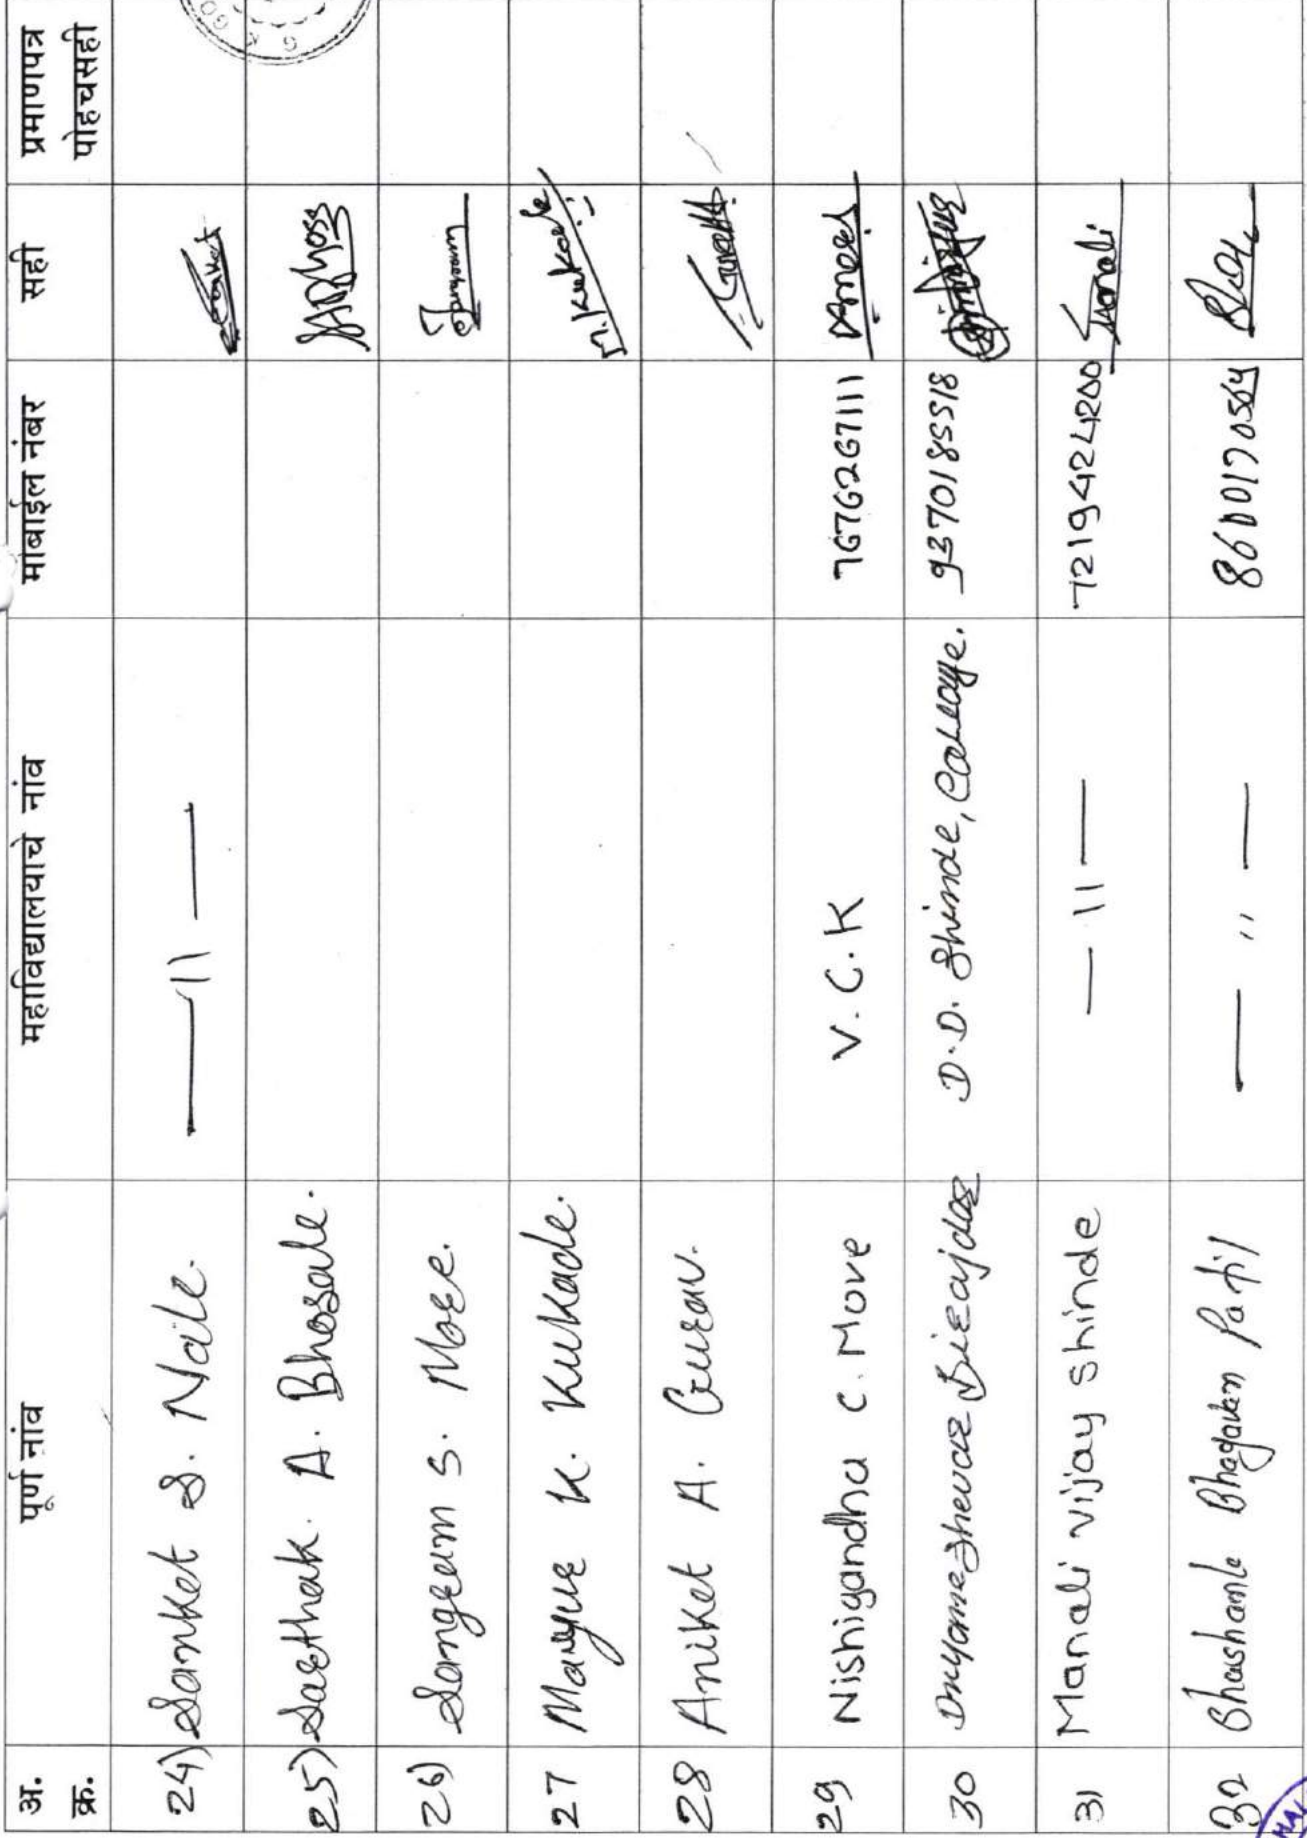 अ. क्र. पूर्ण नांव महाविद्यालयाचे नांव मोबाईल नंबर सही प्रमाणपत्र पोहचसही
24) Sanket S. Naile. —11—
25) Sarthak. A. Bhosale.
26) Sangram S. More.
27 Mayur K. Kukade. M.Kukade
28 Aniket A. Gurav.
29 Nishigandha C. More V.C.K 7676267111 Amore
30 Dnyaneshwar Birajdar D.D. Shinde, Collage. 9370185518
31 Manali vijay Shinde —11— 7219424200
32 Bhagavan Patil — " — 8600170564